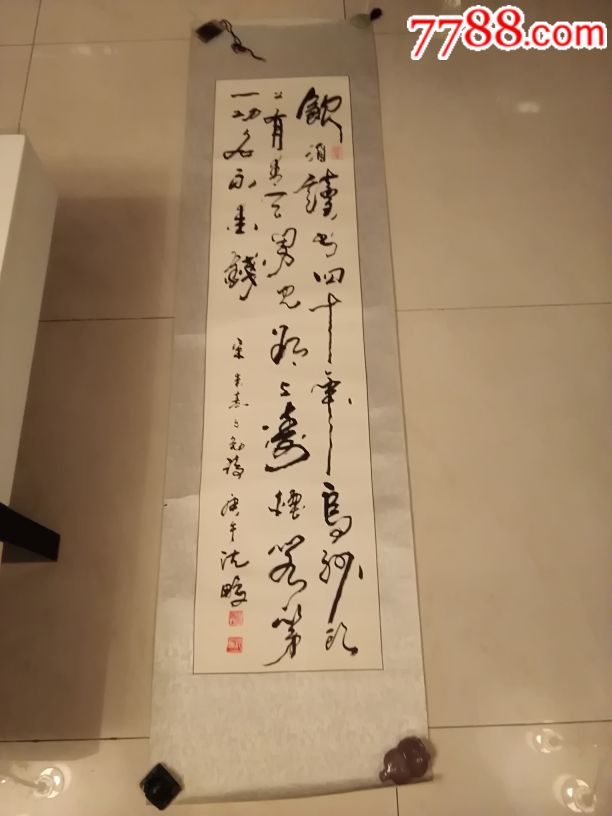 7788.com
飲酒讀書四十年烏紗頭
上有青天男兒欲上凌煙閣第
一功名不愛錢
宋朱熹詩庚午沈